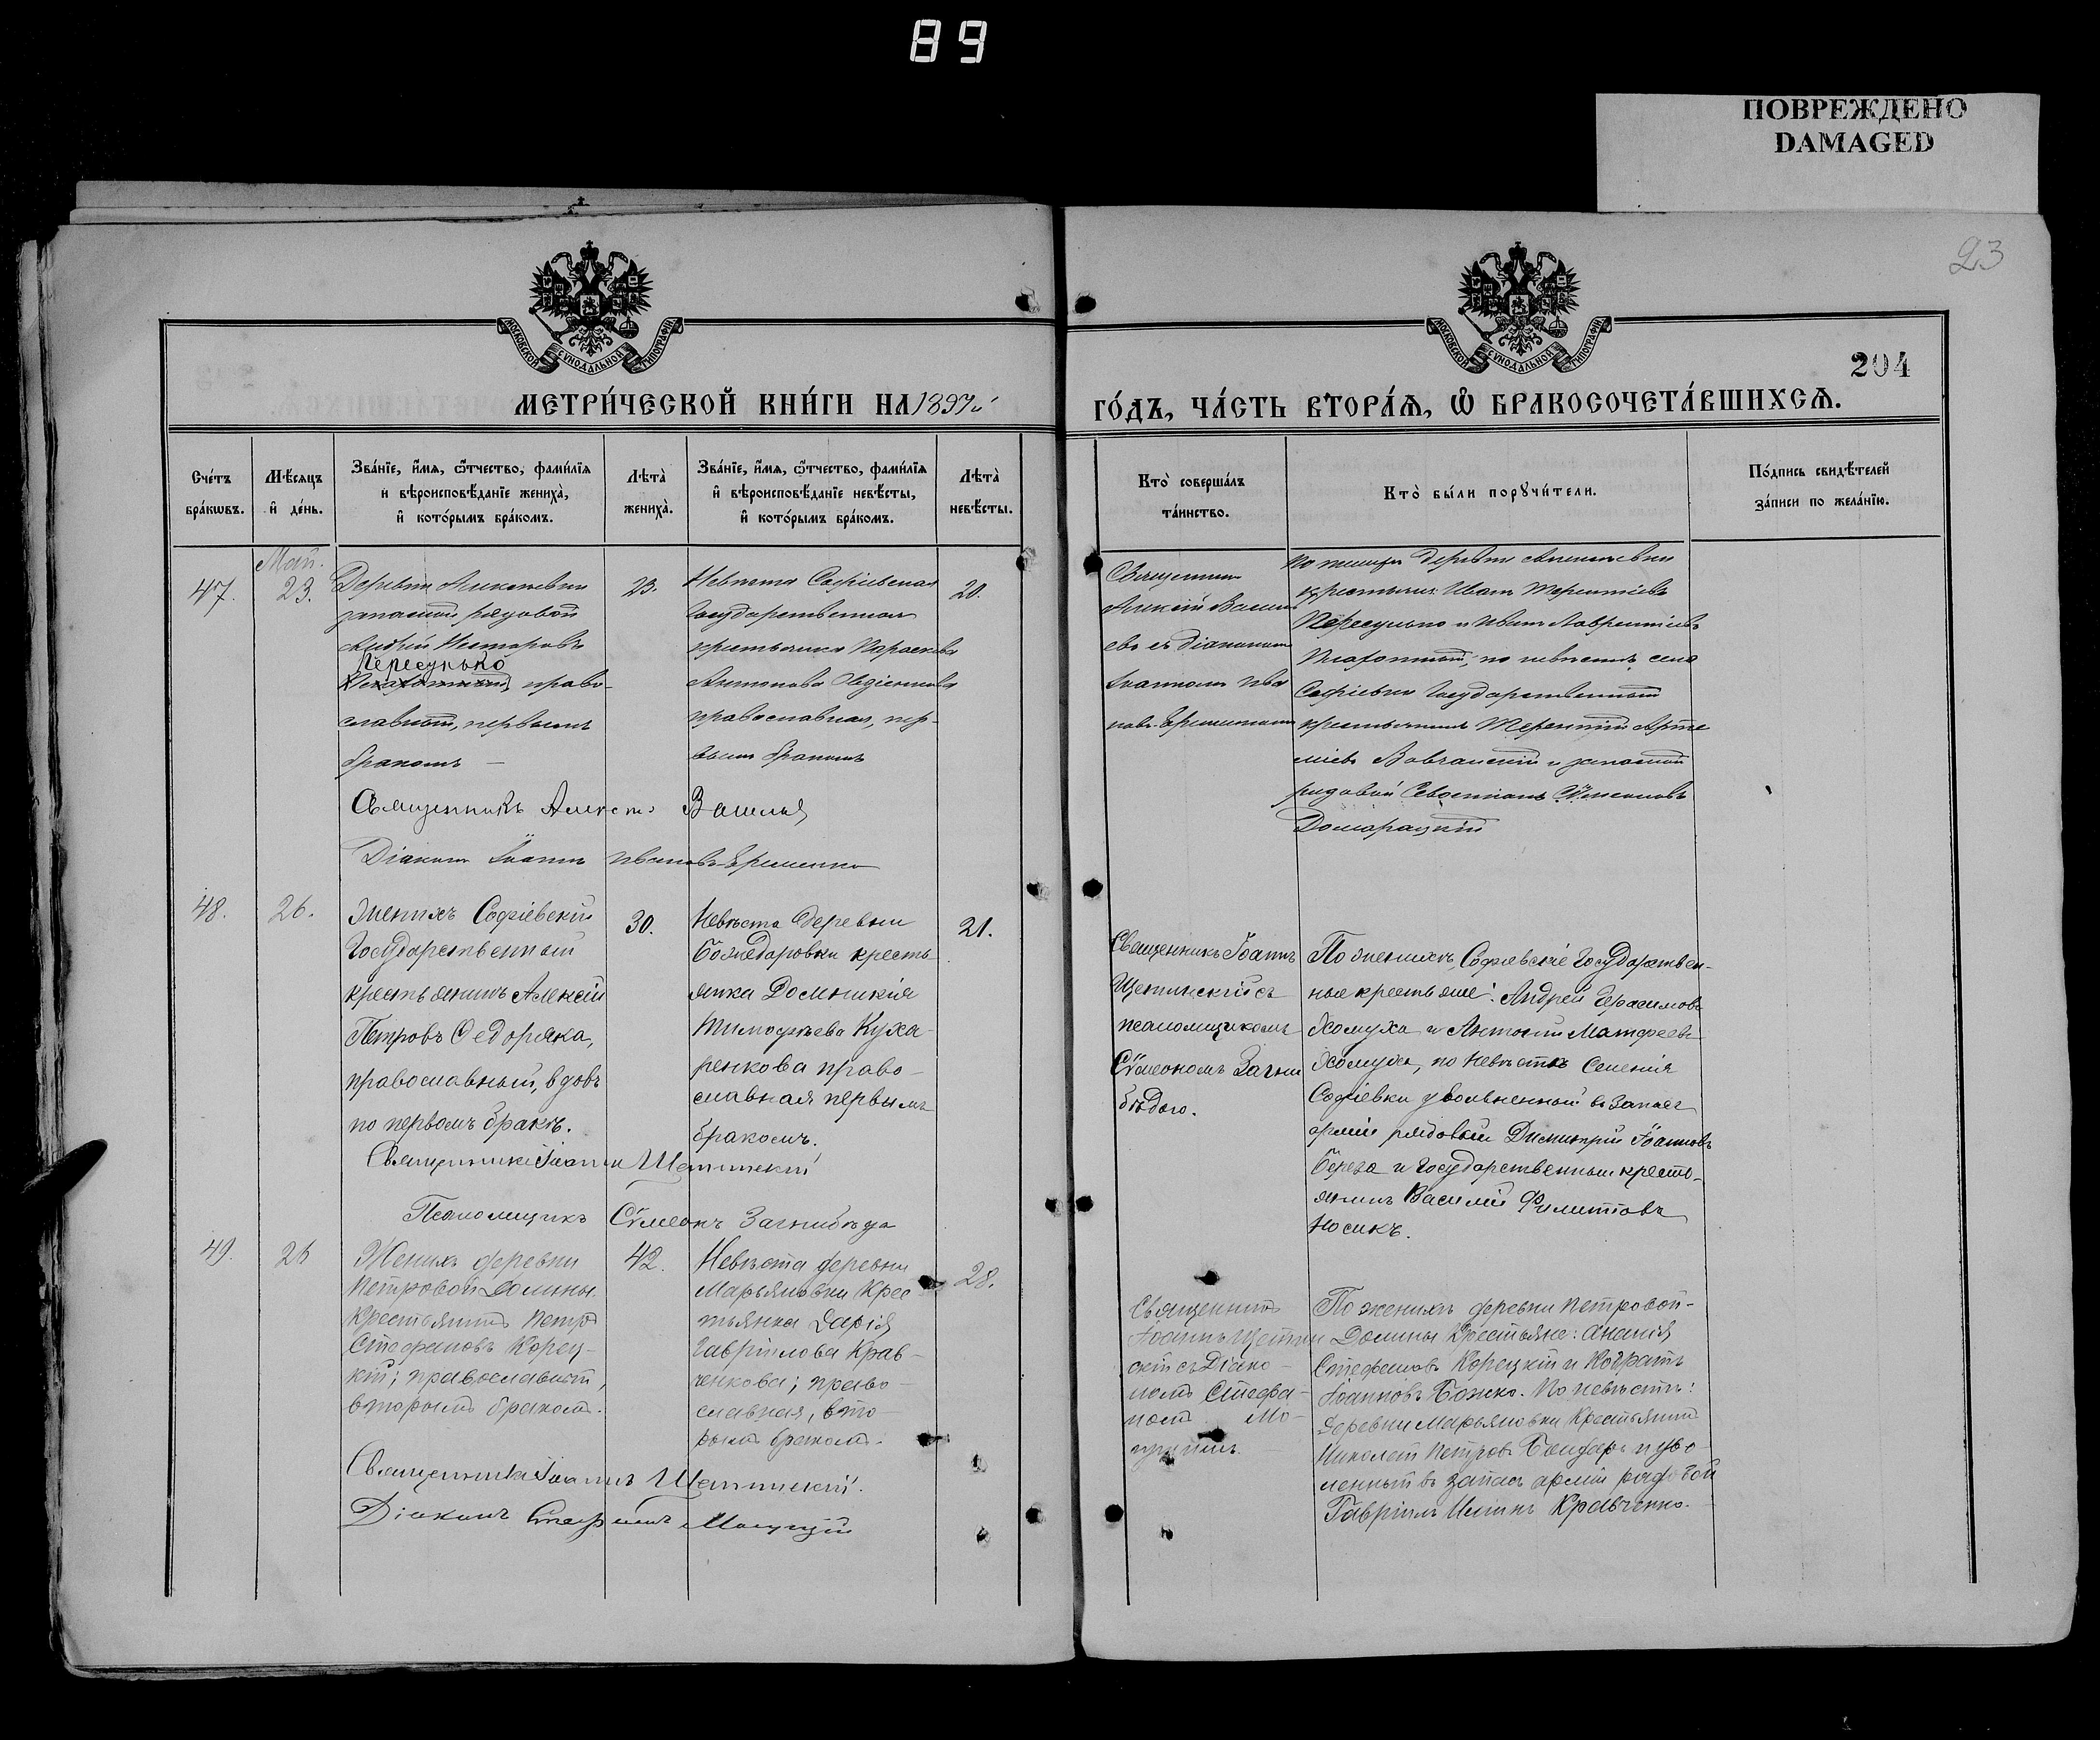 89
ПОВРЕЖДЕНО
DAMAGED
23
МОСКОВСКОЙ СѴНОДАЛЬНОЙ ТИПОГРАФІИ
МОСКОВСКОЙ СѴНОДАЛЬНОЙ ТИПОГРАФІИ
204
МЕТРИ́ЧЕСКОЙ КНИ́ГИ НА 1897й
ГО́ДЪ, ЧА́СТЬ ВТОРА́Ѧ, Ѡ҆ БРАКОСОЧЕТА́ВШИХСѦ.
Сче́тъ
бра́кѡвъ.
Мѣ́сѧцъ
и҆ де́нь.
Зва́нїе, и҆́мѧ, ѻ҆́тчество, фами́лїѧ
и҆ вѣроисповѣ́данїе жениха̀,
и҆ кото́рымъ бра́комъ.
Лѣта̀
жениха̀.
Зва́нїе, и҆́мѧ, ѻ҆́тчество, фами́лїѧ
и҆ вѣроисповѣ́данїе невѣ́сты,
и҆ кото́рымъ бра́комъ.
Лѣта̀
невѣ́сты.
Кто̀ соверша́лъ
та́инство.
Кто̀ бы́ли порꙋчи́тели.
По́дпись свидѣ́телей
за́писи по жела́нїю.
Май.
47.
23.
Деревни
запасный рядовой
Андрей Несторовъ
Пересунько
право-
славный, первымъ
бракомъ —
23.
Невѣста Софіевская
Государственная
крестьянка Параскева
Антонова Авдіенкова
православная, пер-
вымъ бракомъ
20.
Священникъ
Алексій
евъ съ діакономъ
Іоанномъ Ива
новъ-Еременкомъ
По женихѣ деревни
крестьяне: Иванъ Терентіевъ
Пересунько и Иванъ Лаврентіевъ
по невѣстѣ села
Софіевки Государственный
крестьянинъ Терентій Арте
міевъ Вовчанскій и запасный
рядовой Севостіанъ Сѷмеоновъ
Домарацкій
Священникъ Алексій
Діаконъ Іоаннъ Ивановъ-Еременко
48.
26.
Женихъ Софіевскій
Государственный
крестьянинъ Алексій
Петровъ Сѣдоряка,
православный, вдовъ
по первомъ бракѣ.
30.
Невѣста деревни
Божедаровки кресть
янка Домникія
Тимофѣева Куха-
ренкова право-
славная первымъ
бракомъ.
21.
Священникъ Іоаннъ
Щетинскій съ
псаломщикомъ
Сѷмеономъ Загни
бѣдою.
По женихѣ, Софіевскіе Государствен-
ные крестьяне: Андрей Герасимовъ
Хомуха и Антоній Матфеевъ
Хомуха, по невѣстѣ Селенія
Софіевки уволенный въ запасъ
арміи рядовый Димитрій Іоанновъ
Береза и Государственный кресть-
янинъ Василій Филиповъ
Носикъ.
Священникъ Іоаннъ Щетинскій
Псаломщикъ Сѷмеонъ Загнибѣда
49.
26
Женихъ деревни
Петровой Долины
Крестьянинъ Петръ
Стефановъ Корец-
кій; православный,
вторымъ бракомъ.
42.
Невѣста деревни
Марьяновки Крес
тьянка Дарія
Гавріилова Крав-
ченкова; право-
славная, вто-
рымъ бракомъ.
28.
Священникъ
Іоаннъ Щетин
скій съ Діако-
номъ Стефа-
номъ Мо-
По женихѣ деревни Петровой-
Долины Крестьяне: Ананія
Стефановъ Корецкій и Кодратъ
Іоанновъ Божко. По невѣстѣ:
Деревни Марьяновки Крестьянинъ
Николай Петровъ Бондарь и уво-
ленный въ запасъ арміи рядовой
Гавріилъ Кравченко.
Священникъ Іоаннъ Щетинскій.
Діаконъ Стефанъ